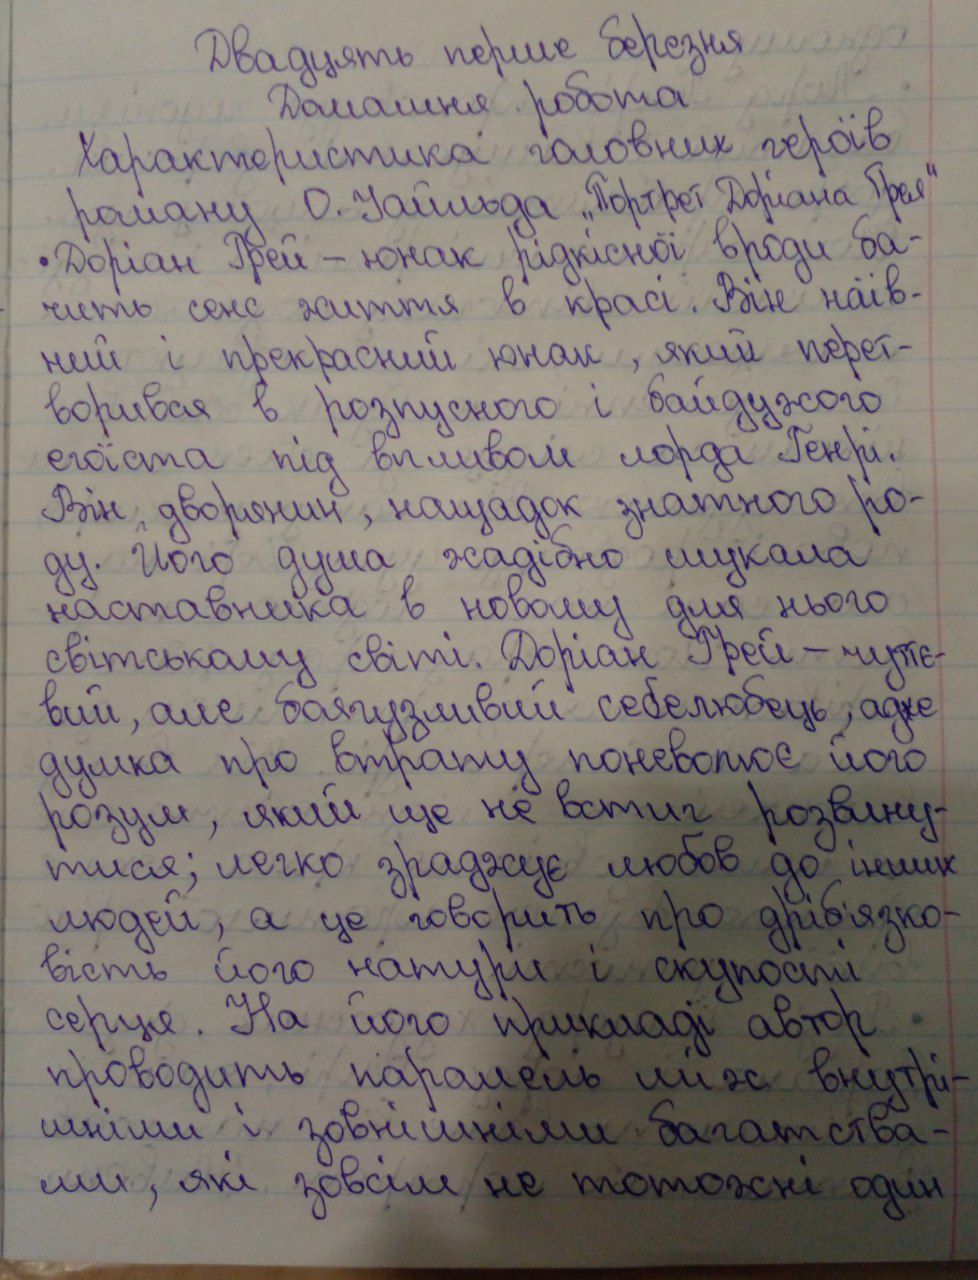 Двадцять перше березня
Домашня робота
Характеристика головних героїв
роману О. Уайльда „Портрет Доріана Грея"
• Доріан Грей – юнак рідкісної вроди ба-
чить сенс життя в красі. Він наїв-
ний і прекрасний юнак, який перет-
ворився в розпусного і байдужого
егоїста під впливом лорда Генрі.
Він дворянин, нащадок знатного ро-
ду. Його душа жадібно шукала
наставника в новому для нього
світському світі. Доріан Грей – чуттє-
вий, але боягузливий себелюбець, адже
думка про втрату поневолює його
розум, який ще не встиг розвину-
тися; легко зраджує любов до інших
людей, а це говорить про дріб'язко-
вість його натури і скупості
серця. На його прикладі автор
проводить паралель між внутрі-
шніми і зовнішніми багатства-
ми, які зовсім не тотожні один